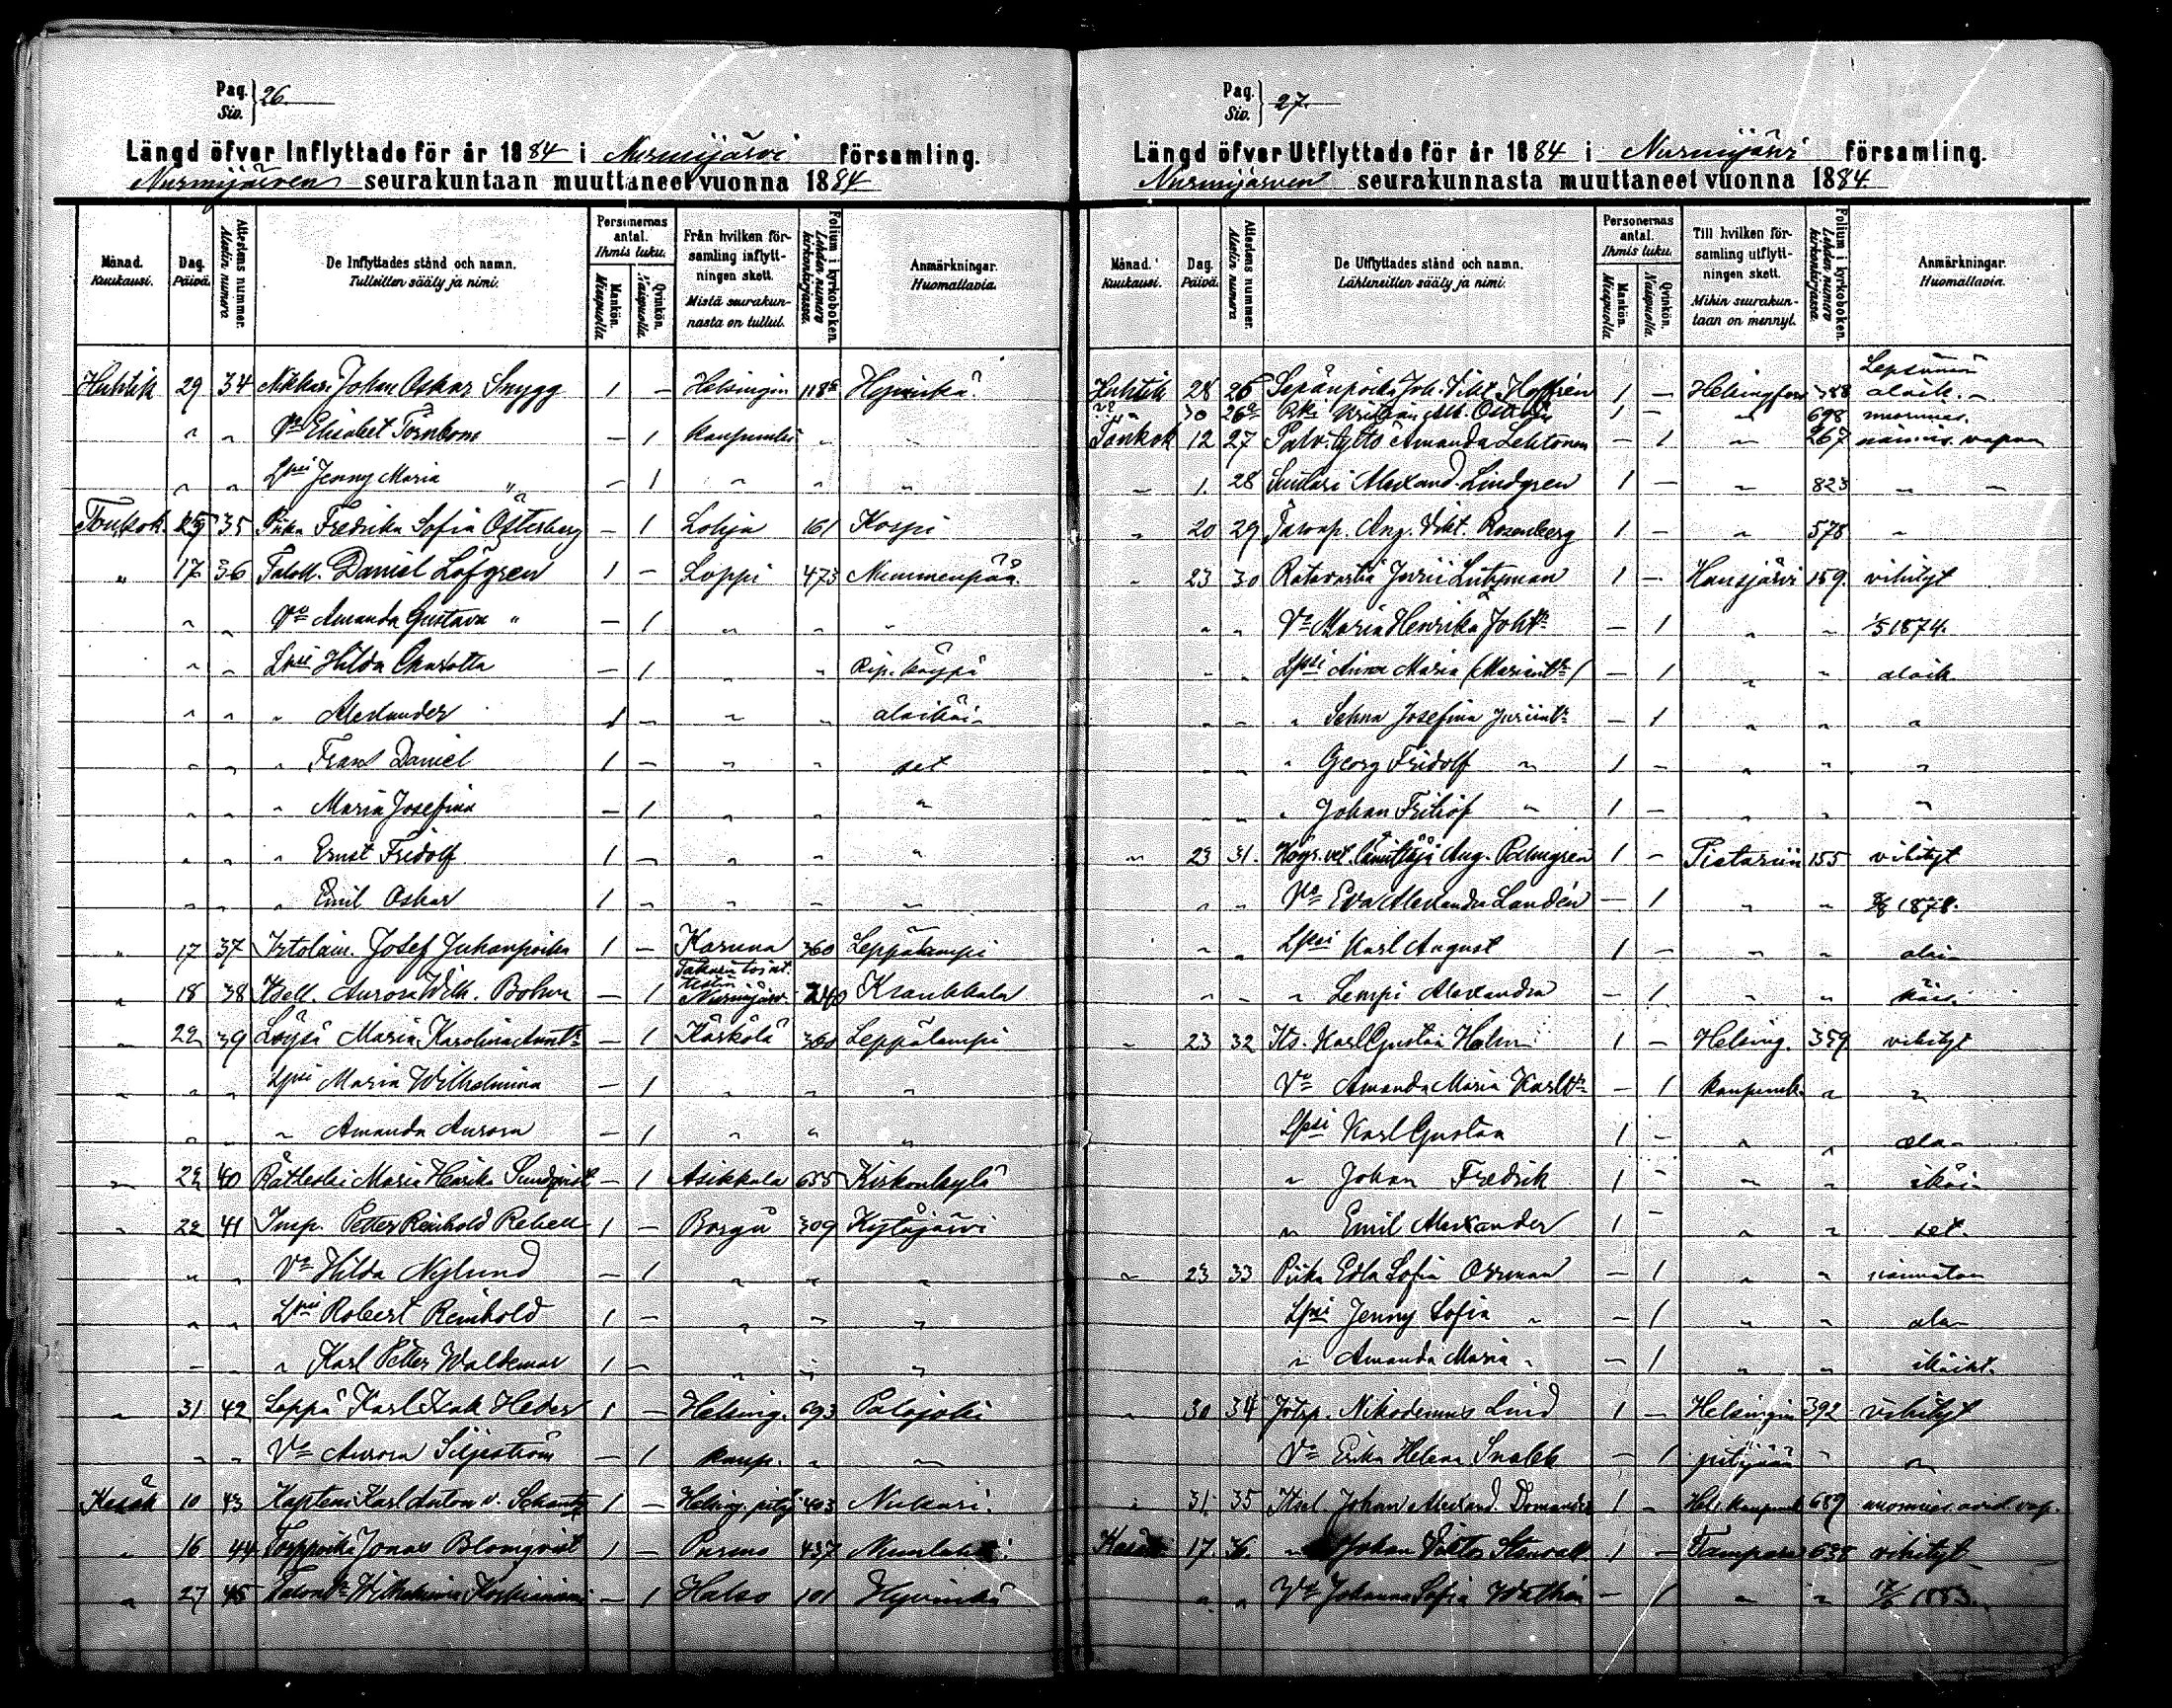 Pag. Siv. 26.
Längd öfver Inflyttade för år 1884 i Nurmijärvi församling.
Nurmijärven seurakuntaan muuttaneet vuonna 1884
Månad. Kuukausi.
Dag. Päivä.
Attestens nummer. Alestin numero
De Inflyttades stånd och namn. Tulleitten sääty ja nimi.
Personernas antal. Ihmis luku.
Mankön. Miespuolta
Qvinkön. Naispuolta.
Från hvilken församling inflyttningen skett. Mistä seurakunnasta on tullut.
Folium i kyrkoboken. Lehden numero kirkonkirjassa.
Anmärkningar. Huomattavia.
Huhtik 29 34 Nikkar. Johan Oskar Snygg 1 – Helsingin 118 Hyvinkä
" " Vo Elisabet Törnblom – 1 kaupunki " "
" " Lpsi Jenny Maria " – 1 " " "
Toukok. 35 Piika Fredrika Sofia Österberg – 1 Lohja 161 Kospi
" 17 36 Taloll. Daniel Löfgren 1 – Loppi 473 Nummenpää
" " Vo Amanda Gustava " – 1 " " "
" " Lpsi Hilda Charlotta – 1 " " Rip. käypä
" " " Alexander 1 – " " alaikäi-
" " " Frans Daniel 1 – " " set
" " " Maria Josefina – 1 " " "
" " " Ernst Fridolf 1 – " " "
" " " Emil Oskar 1 – " " "
" 17 37 Itstolain. Josef Juhanpoika 1 – Karuna 360 Leppälampi
" 18 38 Itsell. Aurora Wilh. Bohm – 1 Nurmijärv. 240 Kraukkala
" 22 39 Löysä Maria Karolina Antt. – 1 Kärkölä 360 Leppälampi
" " " Lpsi Maria Wilhelmina – 1 " " "
" " " Amanda Aurora – 1 " " "
" 22 40 Rättleski Maria Henrika Sundqvist – 1 Asikkala 635 Kirkonkylä
" 22 41 Insp. Petter Reinhold Rebell 1 – Borgå 309 Kytäjärvi
" " Vo Hilda Nylund – 1 " " "
" " Lpsi Robert Reinhold 1 – " " "
" " " Karl Petter Waldemar 1 – " " "
" 31 42 Seppä Karl Isak Heder 1 – Helsing. 693 Palojoki
" " Vo Aurora Siljeström – 1 kaup. " "
Kesäk 10 43 Kapteni Karl Anton v. Schantz 1 – Helsing. pitäj 403 Nukari.
" 16 44 Torppoika Jonas Blomqvist 1 – Purmo 437
" 27 45 Wilhelmina – 1 Halso 101 Hyvinkä
Pag. Siv. 27.
Längd öfver Utflyttade för år 1884 i Nurmijärvi församling.
Nurmijärven seurakunnasta muuttaneet vuonna 1884.
Månad. Kuukausi.
Dag. Päivä.
Attestens nummer. Alestin numero
De Utflyttades stånd och namn. Lähteneitten sääty ja nimi.
Personernas antal. Ihmis luku.
Mankön. Miespuolta
Qvinkön. Naispuolta.
Till hvilken församling utflyttningen skett. Mihin seurakuntaan on mennyt.
Folium i kyrkoboken. Lehden numero kirkonkirjassa.
Anmärkningar. Huomattavia.
Huhtik 28 26 Sepänpoika Joh. Vikt. Hoffrén 1 – Helsingfors 388 alaik. –
" 30 26a Kristian Alb. 1 – " 698
Toukok 12 27 Palv. tyttö Amanda Lehtonen – 1 " 267 naimis. vapaa
" 1. 28 Suutari Alexand. Lindgren 1 – " 823 " "
" 20 29 Torvp. Aug. Vikt. Rosenberg 1 – " 578 "
" 23 30 Ratavartia Jurii Lutzman 1 – Hausjärvi 159. vihityt
" " Vo Maria Henrika Joht. – 1 " " 1/5 1874.
" " Lpsi Anna Maria (Mariant.) – 1 " " alaik
" " " Selma Josefina Juriint. – 1 " " "
" " " Georg Fridolf " 1 – " " "
" " " Johan Fritiof " 1 – " " "
" 23 31. Aug. Palmgren 1 – Pietariin 155 vihityt
" " Vo Eva Alexandra Landén – 1 " " 1878.
" " Lpsi Karl August 1 – " " alai-
" " " Lempi Alexandra – 1 " " käis.
" 23 32 Its. Karl Gustaa Holm 1 – Helsing. 359 vihityt
Vo Amanda Maria Karlt. – 1 kaupunk. " "
Lpsi Karl Gustaa 1 – " " ala-
" Johan Fredrik 1 – " " ikäi-
" Emil Alexander 1 – " " set.
" 23 33 Piika Edla Sofia Ossman – 1 " " naimaton
Lpsi Jenny Sofia " – 1 " " ala-
" Amanda Maria " – 1 " " ikäiset.
" 30 34 Nikodemus Lind 1 – Helsingin 392 vihityt
Vo Erika Helena – 1 pitäjään " "
" 31. 35 Itsel Johan Alexand. Domander 1 – Hels. kaupunk 689
Kesäk 17. 36. " Johan Viktor Stenvall 1 – Tampere 638 vihityt
" " Vo Johanna Sofia – 1 " " 1883.